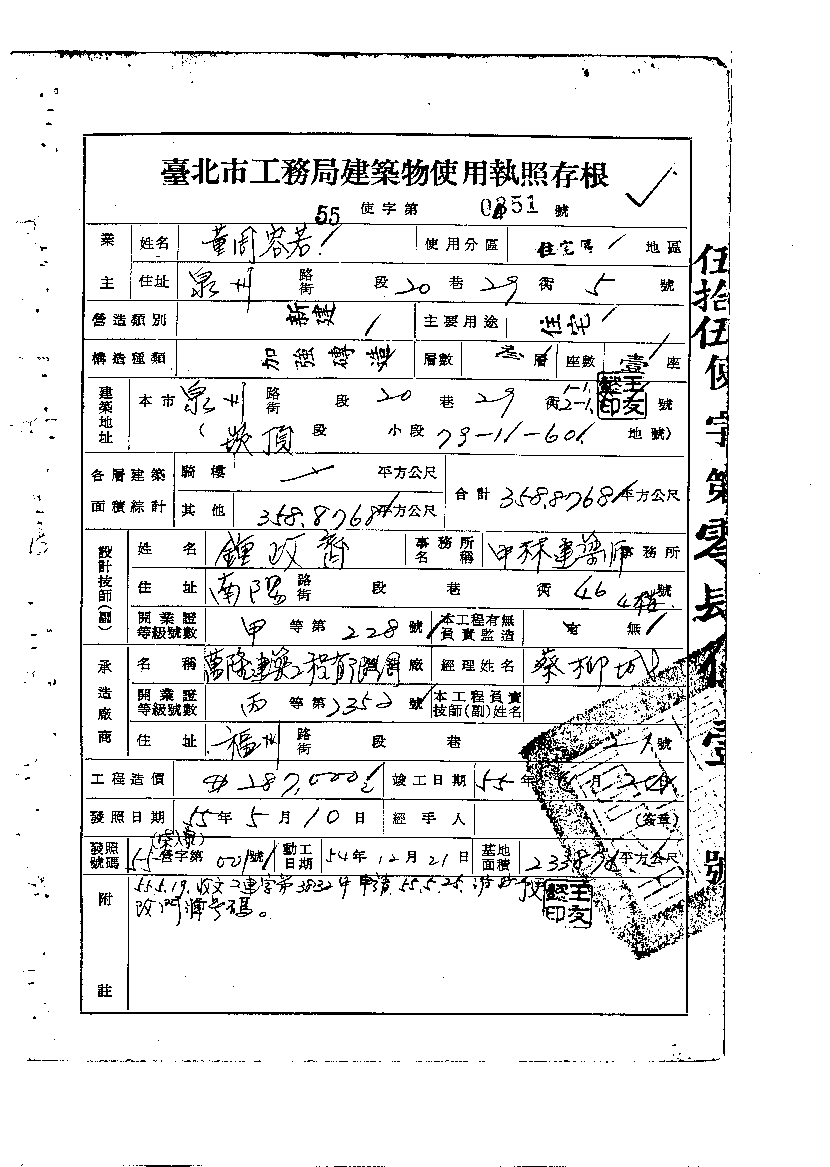 臺北市工務局建築物使用執照存根
55 使字第 0351 號
業主 姓名 董周容若 使用分區 住宅區 地區
住址 泉州 路街 段 20 巷 29 衖 5 號
營造類別 新建 主要用途 住宅
構造種類 加強磚造 層數 層 座數 壹 座
建築地址 本市 泉州 路街 段 20 巷 29 衖 1-1. 2-1. 號
(崁頂 段 小段 79-11-60 地號)
各層建築面積綜計 騎樓 平方公尺 合計 358.8768 平方公尺
其他 358.8768 平方公尺
設計技師(副) 姓名 鍾政齊 事務所名稱 甲林建築師 事務所
住址 南陽 路街 段 巷 衖 46 號 4樓
開業證等級號數 甲 等第 228 號 本工程有無負責監造 無
承造廠商 名稱 萬隆建築工程有限公司 廠 經理姓名 蔡柳城
開業證等級號數 丙 等第 2352 號 本工程負責技師(副)姓名
住址 福州 路街 段 巷 27 號
工程造價 287,000 竣工日期 55 年 月 日
發照日期 55 年 5 月 10 日 經手人 (簽章)
發照號碼 55 營字第 021 號 動工日期 54 年 12 月 21 日 基地面積 平方公尺
附註 55.5.19. 收文 建字第3832 申請 55.5.25.
改門牌号碼。
王友印
伍拾伍使字第零
壹號